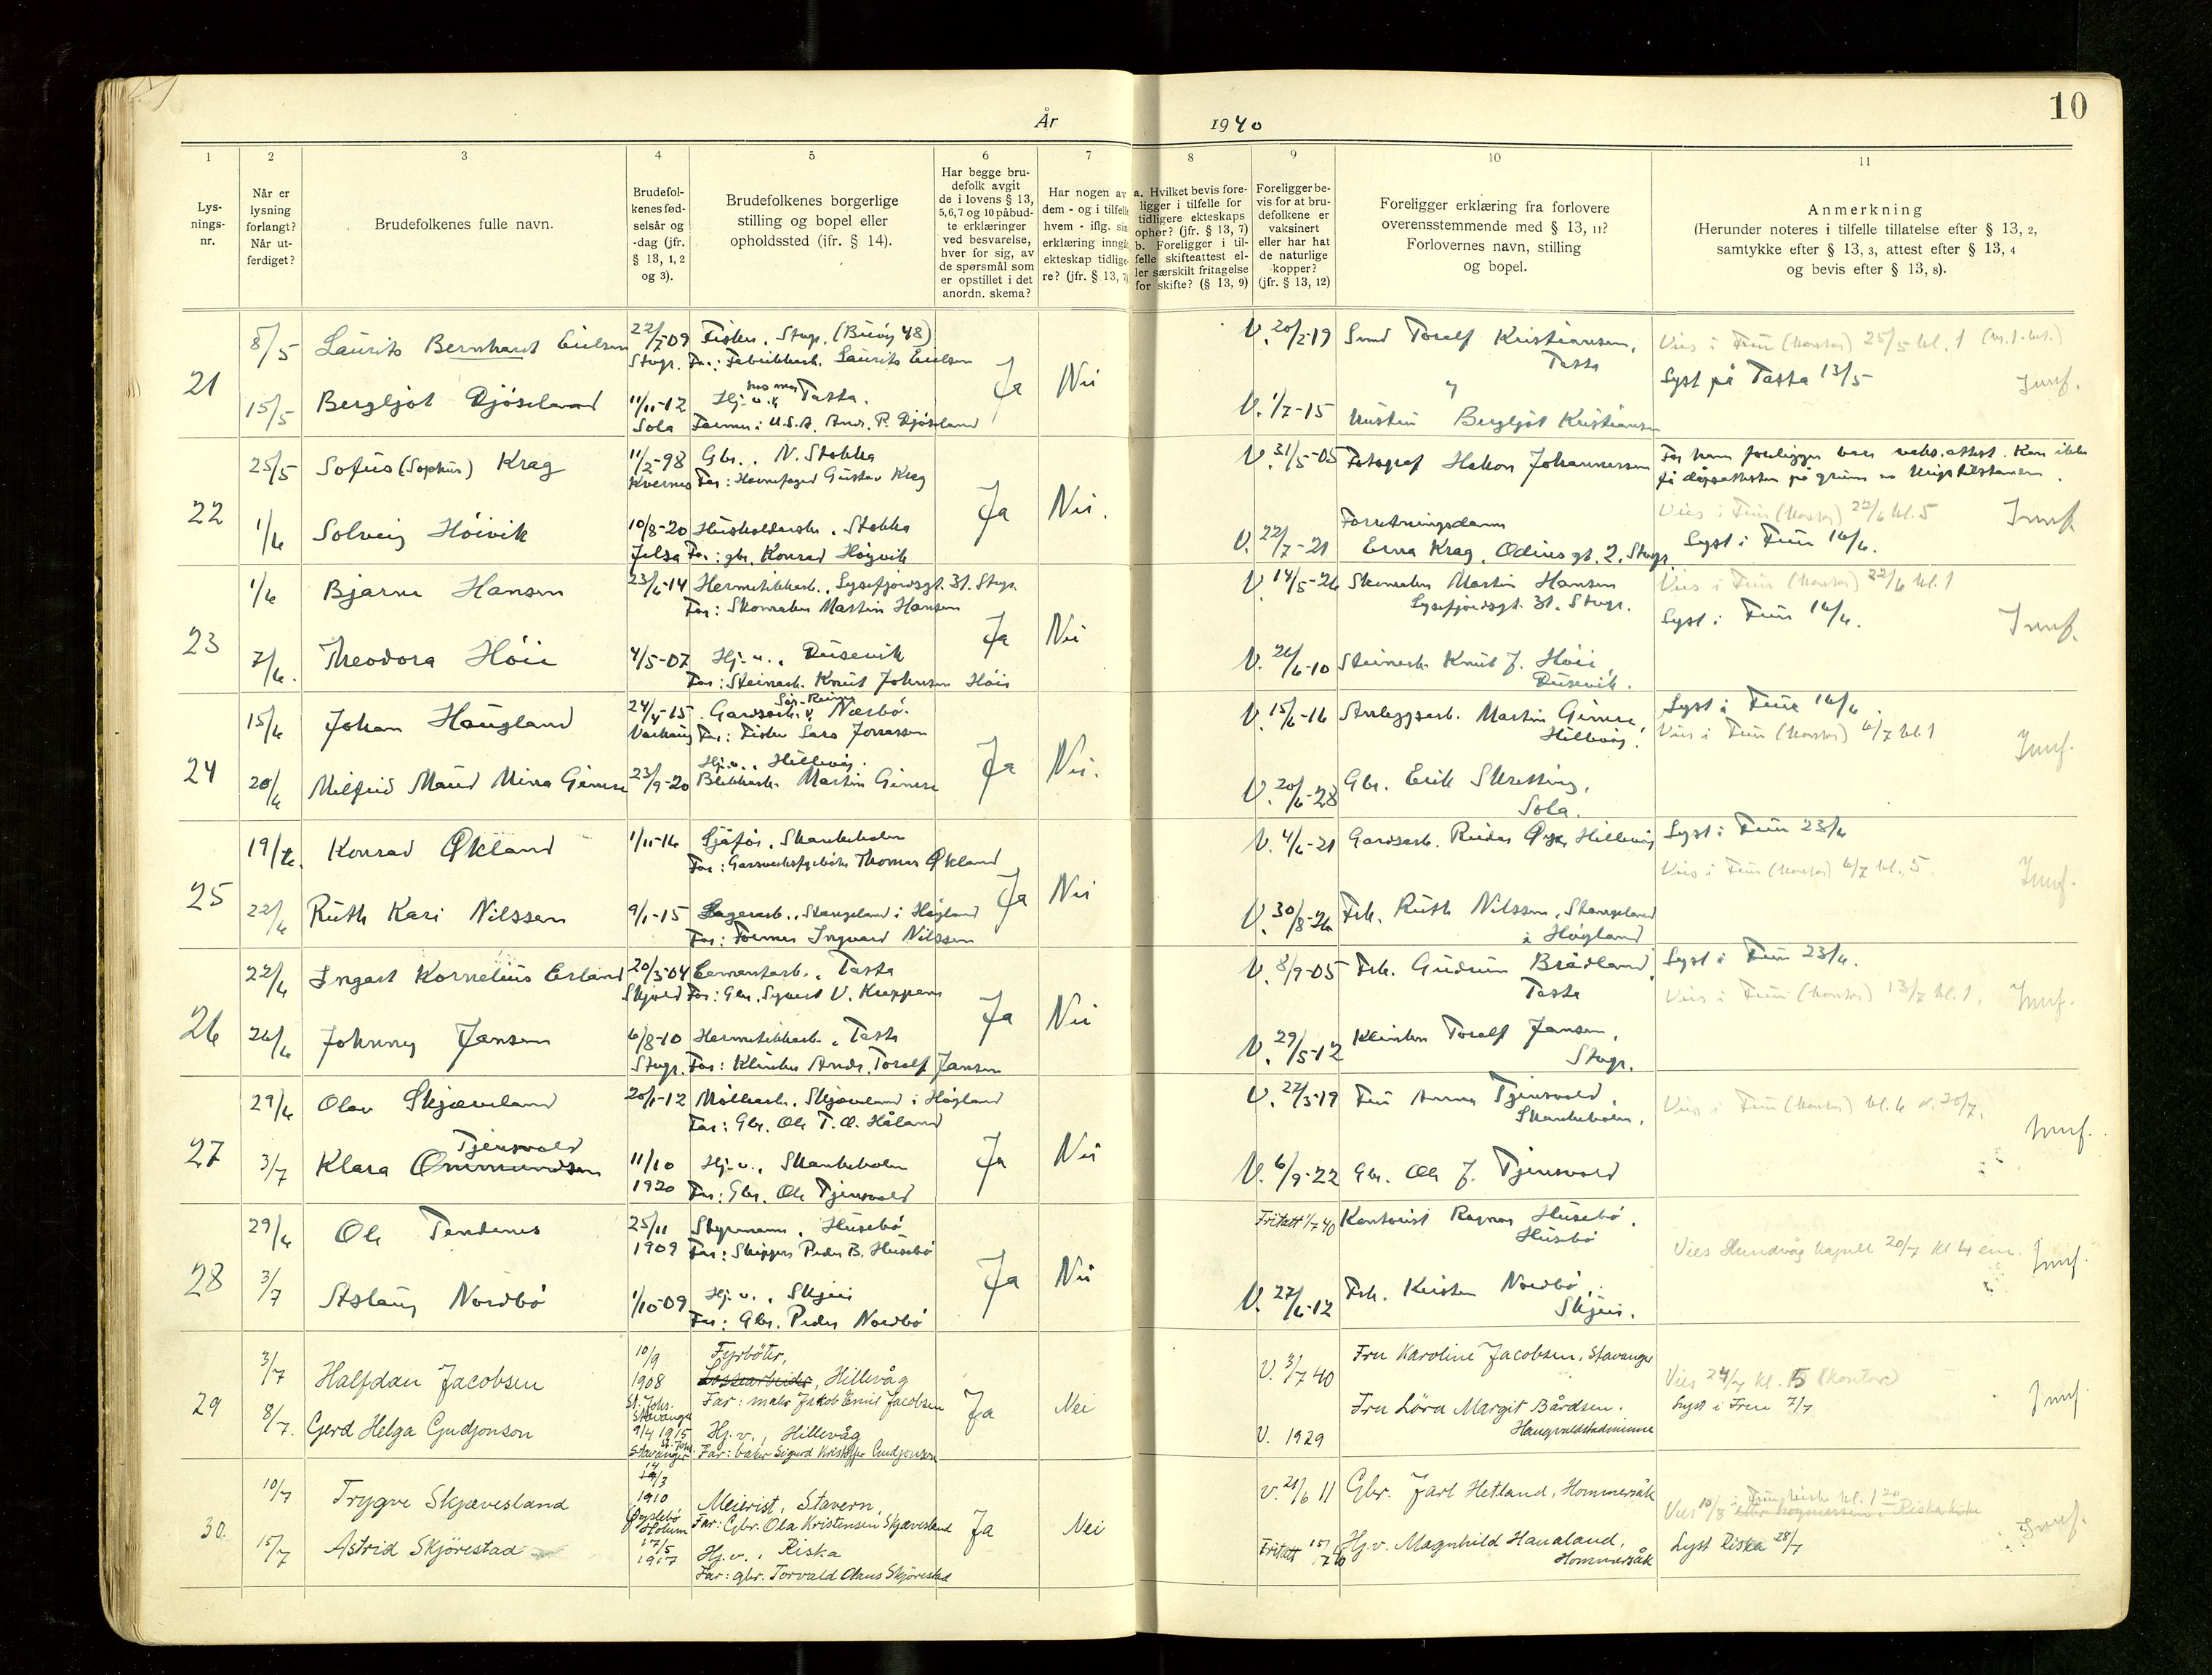 10
År 1940
1
2
3
4
5
6
7
8
9
10
11
Lys-
nings-
nr.
Når er
lysning
forlangt?
Når ut-
ferdiget?
Brudefolkenes fulle navn.
Brudefol-
kenes fød-
selsår og
-dag (jfr.
§ 13, 1, 2
og 3).
Brudefolkenes borgerlige
stilling og bopel eller
opholdssted (ifr. § 14).
Har begge bru-
defolk avgit
de i lovens § 13,
5,6,7 og 10 påbud-
te erklæringer
ved besvarelse,
hver for sig, av
de spørsmål som
er opstillet i det
anordn. skema?
Har nogen av
dem - og i tilfelle
hvem - iflg. sin
erklæring inngå
ekteskap tidlige-
re? (jfr. § 13, 7)
a. Hvilket bevis fore-
ligger i tilfelle for
tidligere ekteskaps
ophør? (jfr. § 13, 7)
b. Foreligger i til-
felle skifteattest el-
ler særskilt fritagelse
for skifte? (§ 13, 9)
Foreligger be-
vis for at bru-
defolkene er
vaksinert
eller har hat
de naturlige
kopper?
(jfr. § 13, 12)
Foreligger erklæring fra forlovere
overensstemmende med § 13, 11?
Forlovernes navn, stilling
og bopel.
Anmerkning
(Herunder noteres i tilfelle tillatelse efter § 13, 2,
samtykke efter § 13, 3, attest efter § 13, 4
og bevis efter § 13, 8).
21
8/5 Laurits Bernhard Eielsen 22/7-09 Fisker, Stvgr. (Buøy 48)
Stvgr. Far: Fabrikkarb. Laurits Eielsen
Ja Nei
V. 20/2-19 Smed Toralf Kristiansen,
Tasta
15/5 Bergljot Djöseland 11/11-12 Hj. v. Tasta.
Sola Farmer i U.S.A. Andr. P. Djöseland
V. 1/7-15 Bergljot Kristiansen
Vies i Frue (kontor) 25/5 kl. 1
Lyst på Tasta 13/5
22
25/5 Sofus (Sophus) Krag 11/2-98 Gbr., N. Stokka
Kvernes Far: Havnefoged Gustav Krag
Ja Nei.
V. 31/5-05 Fotograf Hakon Johannessen
1/6 Solveig Höivik 10/8-20 Husholderske, Stokka
Jelsa Far: gbr. Konrad Höyvik
V. 22/7-21 Forretningsdame
Erna Krag, Odins gt. 2, Stvgr.
Vies i Frue (kontor) 22/6 kl. 5
Lyst i Frue 16/6.
23
1/6 Bjarne Hansen 23/6-14 Hermetikkarb., Lysefjordsgt. 31. Stvgr.
Far: Skomaker Martin Hansen
Ja Nei
V. 14/5-26 Skomaker Martin Hansen
Lysefjordsgt. 31, Stvgr.
7/6. Theodora Höie 4/5-07 Hj. v., Dusevik
Far: Steinarb. Knut Johnsen Höie
V. 26/6-10 Steinarb. Knut J. Höie,
Dusevik.
Vies i Frue (kontor) 22/6 kl. 1
Lyst i Frue 16/6.
24
15/6 Johan Haugland 24/4-15 Gardsarb. Nærbö.
Varhaug Far: Fisker Lars Jonassen
Ja Nei.
V. 15/6-16 Anleggsarb. Martin Gimre,
Hillevåg.
20/6 Milfrid Maud Mirra Gimre 23/9-20 Hj. v., Hillevåg.
Blikkarb. Martin Gimre
V. 20/6-28 Gbr. Erik Skretting,
Sola.
Lyst i Frue 16/6.
Vies i Frue (kontor) 6/7 kl. 1
25
19/6. Konrad Økland 1/11-16 Sjåför, Skankeholen
Far: Gassverksfyrböter Thomas Økland
Ja Nei
V. 4/6-21 Gardsarb. Reidar Øye, Hillevåg
22/6 Ruth Kari Nilssen 9/1-15 Lagerarb., Stangeland i Högland
Far: Former Ingvard Nilssen
V. 30/8-26 Frk. Ruth Nilssen, Stangeland
i Högland
Lyst i Frue 23/6
Vies i Frue (kontor) 6/7 kl. 5
26
22/6 Ingart Kornelius Erland 20/3-04 Cementarb., Tasta
Skjold Far: Gbr. Syvert V.
Ja Nei
V. 8/9-05 Frk. Gudrun Brådland,
Tasta
26/6 Johnny Jansen 6/8-10 Hermetikkarb., Tasta
Stvgr. Far: Klinker Andr. Toralf Jansen
V. 29/5-12 Klinker Toralf Jansen,
Stvgr.
Lyst i Frue 23/6.
Vies i Frue (kontor) 13/7 kl. 1.
27
29/6 Olav Skjæveland 20/1-12 Möllearb., Skjæveland i Högland
Far: Gbr. Ole T. O. Håland
Ja Nei
V. 22/3-19 Fru Anna Tjensvold,
Skankeholen.
Tjensvold
3/7 Klara Ommundsen 11/10 1920 Hj. v., Skankeholen
Far: Gbr. Ole Tjensvold
V. 6/9-22 Gbr. Ole J. Tjensvold
Vies i Frue (kontor) kl. 6 d. 20/7.
28
29/6 Ole Tendenes 25/11 1909 Styrmann, Husebö
Far: Skipper Peder B. Husebö
Ja Nei
Fritatt 1/7 40 Kontorist Ragnar Husebö,
Husebö
3/7 Aslaug Nordbö 1/10-09 Hj. v., Skjeie
Far: Gbr. Peder Nordbö
V. 27/6-12 Frk. Kirsten Nordbö,
Skjeie.
Vies Hundvåg kapell 20/7 kl 4 em.
29
3/7 Halfdan Jacobsen 10/9 1908 Fyrböter,
Lossearbeider, Hillevåg
St. Johs. Stavanger Far: maler Jakob Emil Jacobsen
Ja Nei
V. 3/7 40 Fru Karoline Jacobsen, Stavanger
8/7. Gerd Helga Gudjonson 9/4 1915 Hj. v., Hillevåg
St. Johs. Stavanger Far: baker Sigurd Kristoffer Gudjonson
V. 1929 Fru Löra Margit Bårdsen.
Haugvaldstadminne
Vies 24/7 kl. 5 (kontor)
Lyst i Frue 7/7
30.
10/7 Trygve Skjævesland 14/3 1910 Meierist, Stavern,
Öyslebö Holum Far: Gbr. Ola Kristensen Skjævesland
Ja Nei
V. 21/6 11 Gbr. Jarl Hetland, Hommersåk
15/7 Astrid Skjörestad 17/5 1917 Hj. v., Riska
Far: gbr. Torvald Claus Skjörestad
Fritatt 15/7 40 Hj. v. Magnhild Haualand,
Hommersåk
Vies 10/8 i Fruekirke kl. 1 20
Lyst Riska 28/7